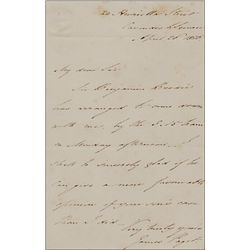 24 Henrietta Street
Cavendish Square
April 20th 1850
My dear Sir
Sir Benjamin Brodie
has arranged to come down
with me, by the 5.15 train
on Monday afternoon. I
shall be sincerely glad if he
can give a more favourable
opinion of your said case
than I did.
Very truly yours
James Paget